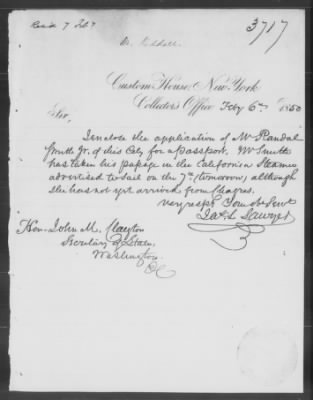 Recd 7 Feby
3717
Custom House, New York
Collector's Office Feby 6th 1850
Sir,
I enclose the application of Mr Randal
Smith Jr. of this City for a passport. Mr Smith
has taken his passage in the California Steamer
advertised to sail on the 7th (tomorrow), although
she has not yet arrived from Chagres.
very respy Your Ob Servt
Hon. John M. Clayton
Secretary of State,
Washington
DC